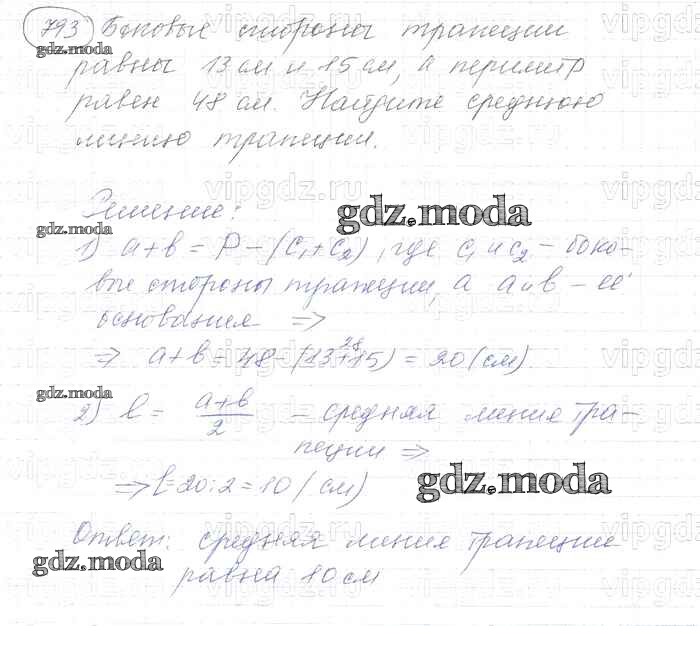 793 Боковые стороны трапеции
gdz.moda
равны 13 см и 15 см, а периметр
равен 48 см. Найдите среднюю
линию трапеции.
vipgdz.ru
Решение:
gdz.moda
gdz.moda
1) a+b = P - (c₁+c₂), где c₁ и c₂ - боко-
вые стороны трапеции, а a и b - её
основания ⇒
28
⇒ a+b = 48 - (13+15) = 20 (см)
gdz.moda
2) l = (a+b)/2 - средняя линия тра-
пеции ⇒
⇒ l = 20:2 = 10 (см)
gdz.moda
Ответ: средняя линия трапеции
gdz.moda
равна 10 см